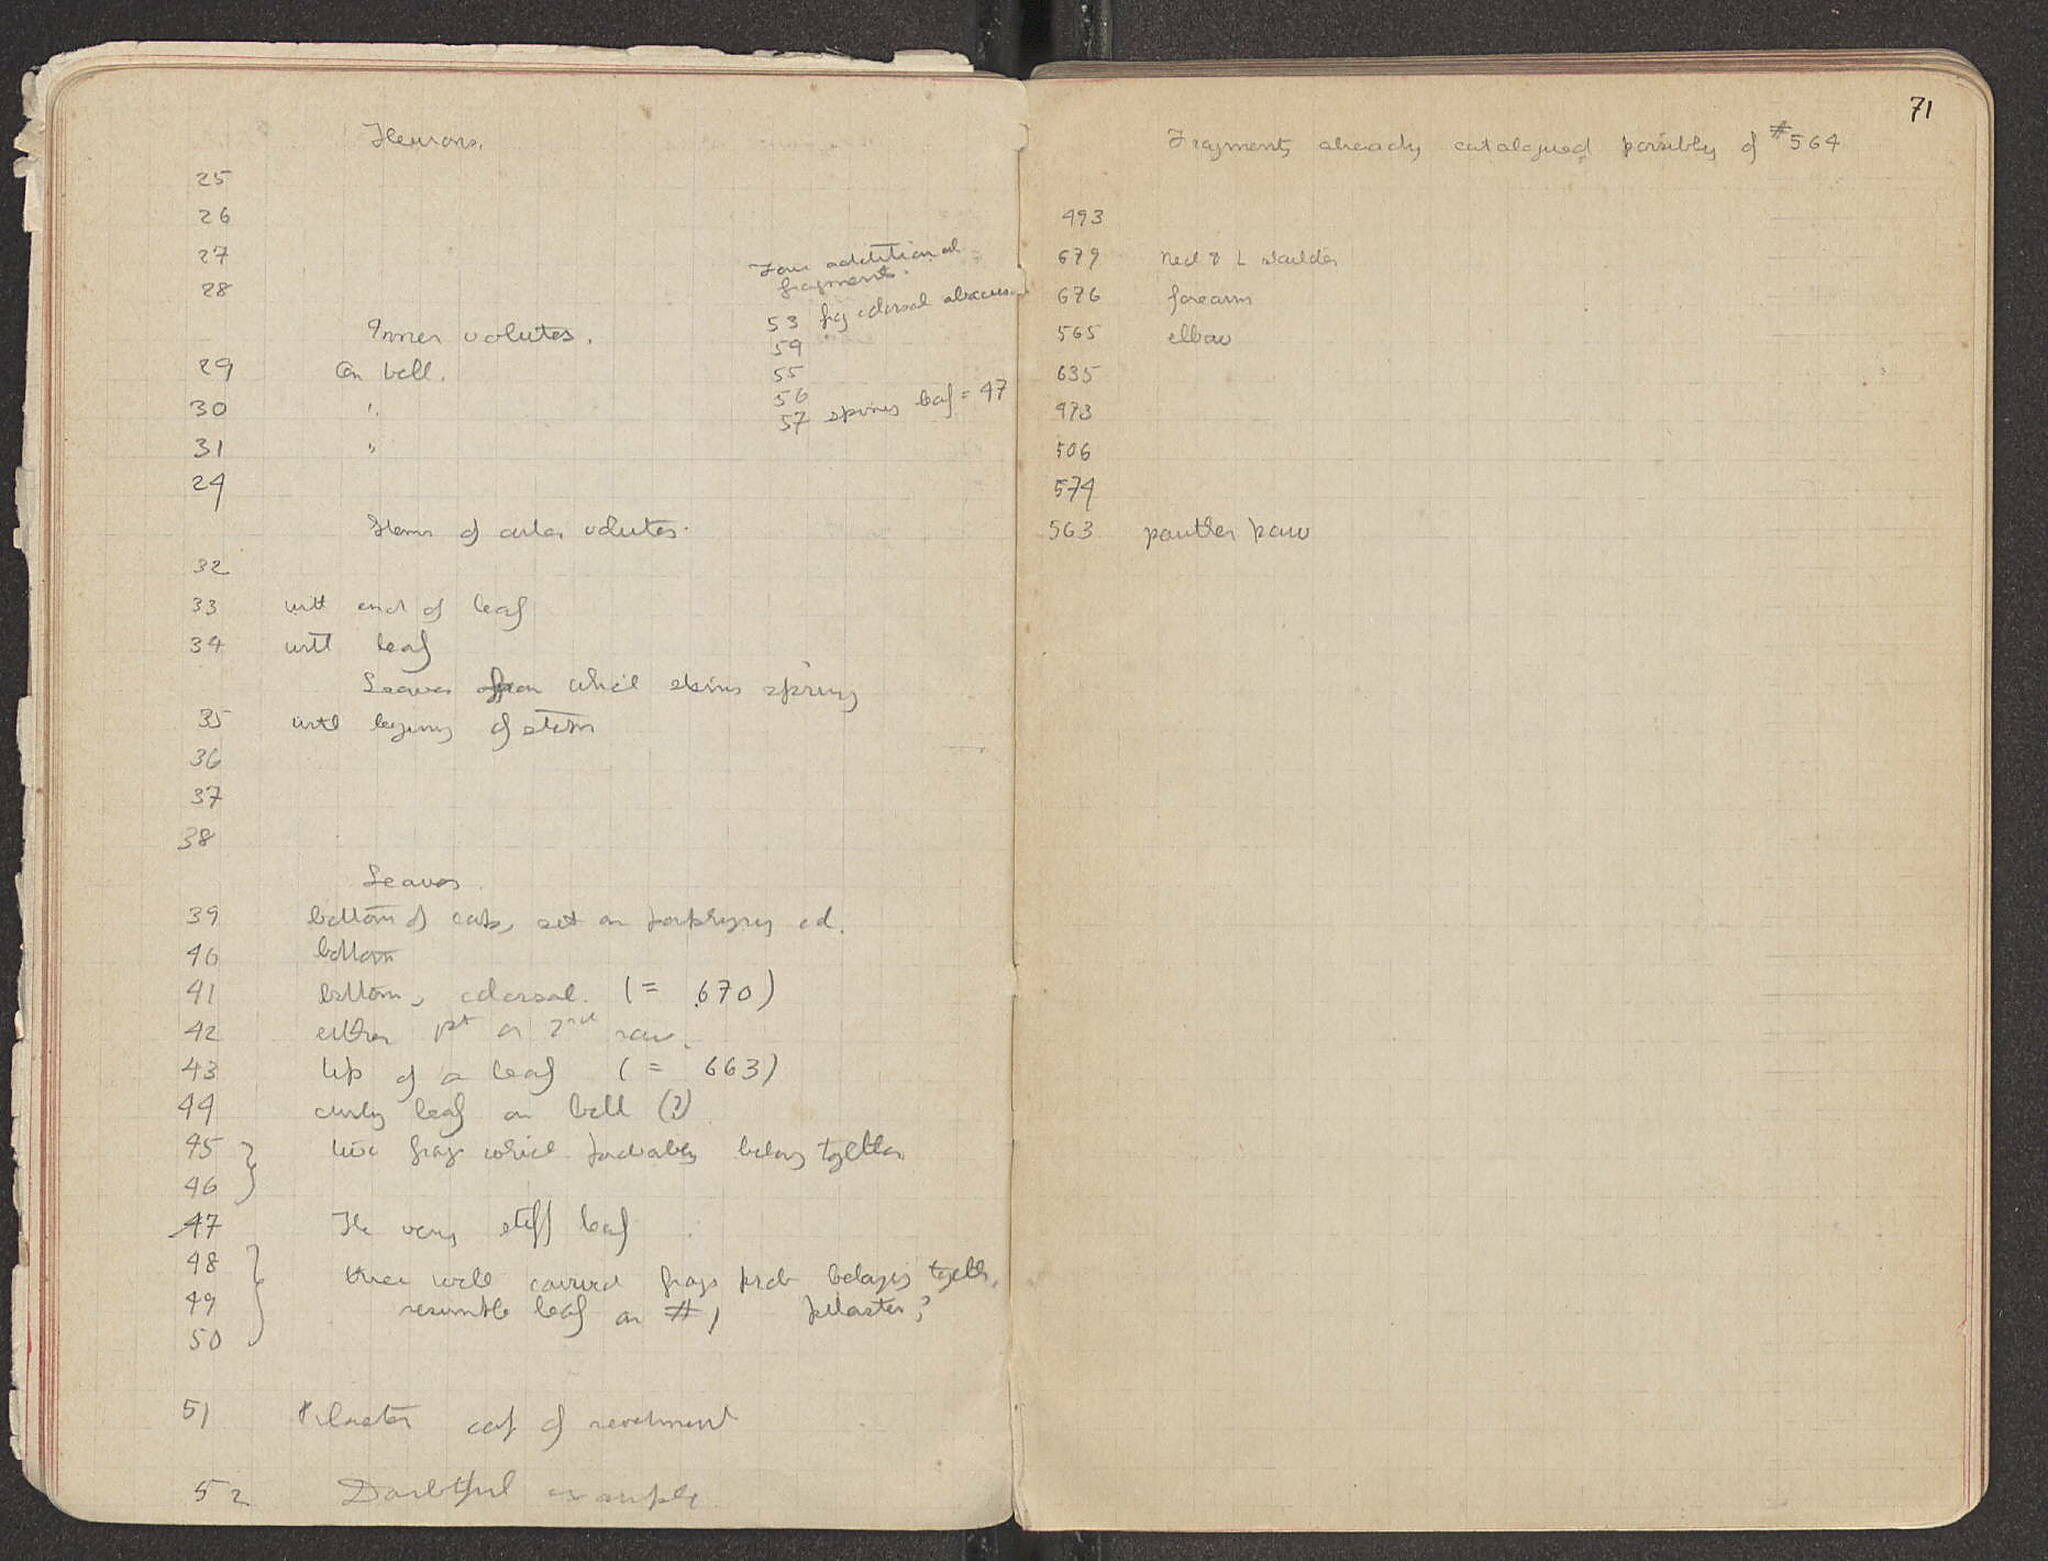 Fleurons.
25
26
27
28
Four additional
fragments.
53 frg colossal
59
55
56
57 spiney leaf = 47
Inner volutes.
29 On bell.
30 "
31 "
24
Stems of outer volutes.
32
33 with end of leaf
34 with leaf
Leaves from which stems spring
35 with beginng of stem
36
37
38
Leaves.
39 bottom of cap, set on porphyry col.
40 bottom
41 bottom, colossal. (= 670)
42 either 1st or 2nd row.
43 tip of a leaf (= 663)
44 curly leaf on bell (?)
45 two frags which probably belong together
46
47 The very stiff leaf
48
49 three well carved frags prob belongig togeth.
resemble leaf on #1 pilaster?
50
51 Pilaster cap of revetment
52 Doubtful example
71
Fragments already catalogued possibly of #564
493
679 neck & L shoulder
676 forearm
565 elbow
635
473
506
574
563 panther paw